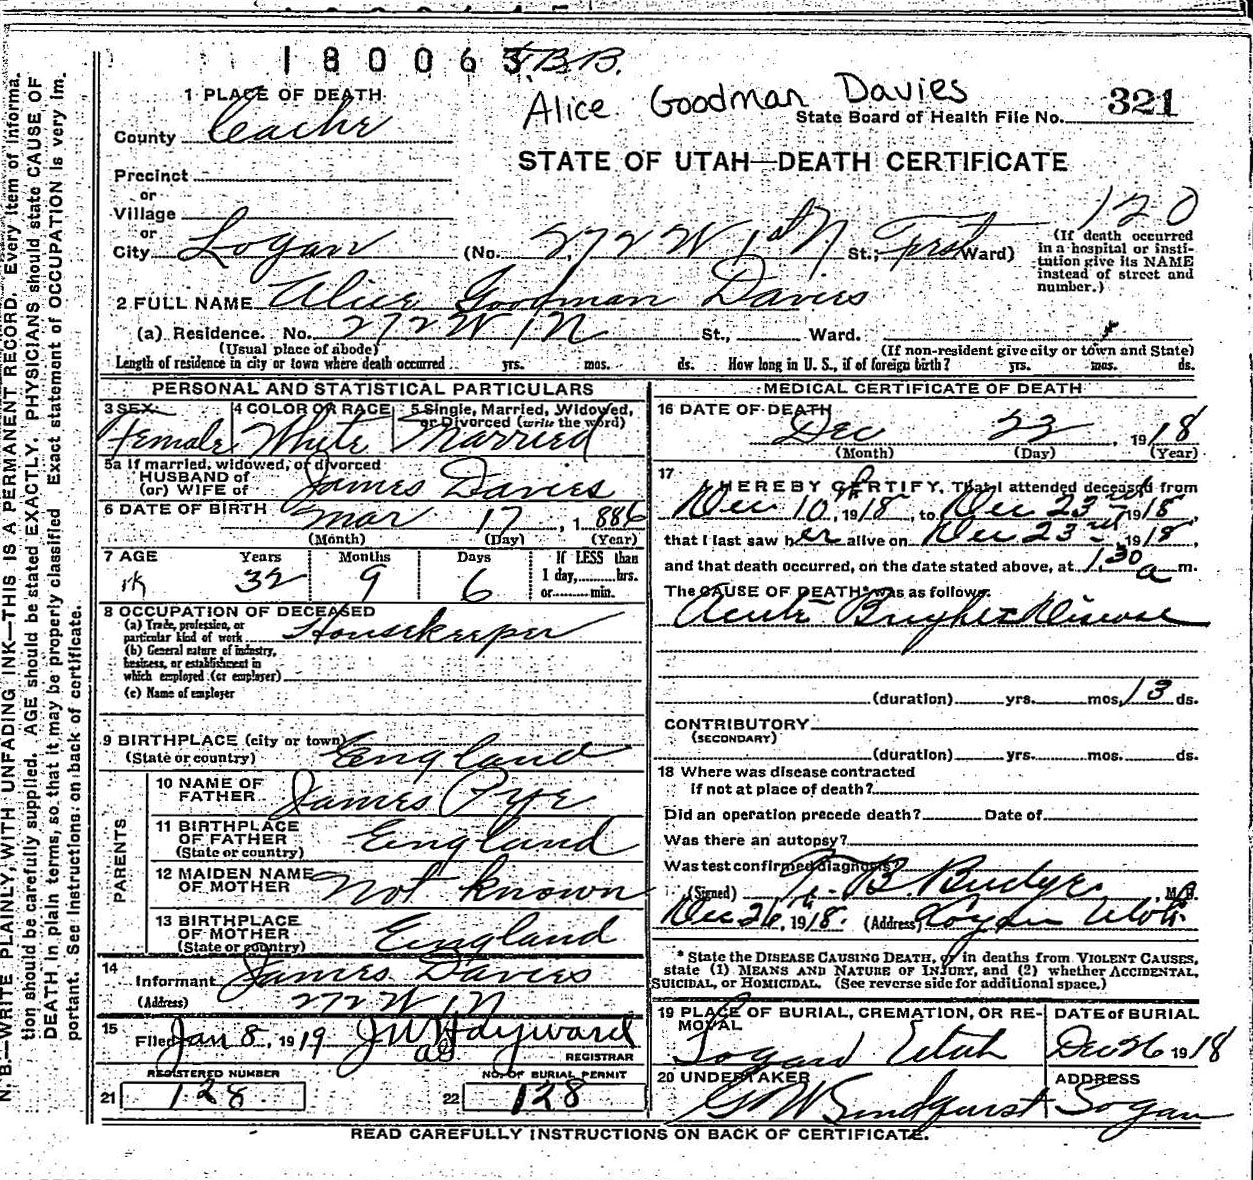 1800635 T.B.B.
Alice Goodman Davies
1 PLACE OF DEATH
County Cache
State Board of Health File No. 321
STATE OF UTAH—DEATH CERTIFICATE
Precinct
or
Village
or
City Logan (No. 272 W 1st N St.; First Ward)
120
(If death occurred in a hospital or institution give its NAME instead of street and number.)
2 FULL NAME Alice Goodman Davies
(a) Residence. No. 272 W 1 N St., Ward.
(Usual place of abode) (If non-resident give city or town and State)
Length of residence in city or town where death occurred yrs. mos. ds. How long in U. S., if of foreign birth? yrs. mos. ds.
PERSONAL AND STATISTICAL PARTICULARS
3 SEX Female
4 COLOR OR RACE White
5 Single, Married, Widowed, or Divorced (write the word) Married
5a If married, widowed, or divorced
HUSBAND of
(or) WIFE of James Davies
6 DATE OF BIRTH Mar 17, 1886
(Month) (Day) (Year)
7 AGE Years 32 Months 9 Days 6
If LESS than
1 day, hrs.
or min.
8 OCCUPATION OF DECEASED
(a) Trade, profession, or
particular kind of work Housekeeper
(b) General nature of industry,
business, or establishment in
which employed (or employer)
(c) Name of employer
9 BIRTHPLACE (city or town)
(State or country) England
PARENTS
10 NAME OF
FATHER James Pye
11 BIRTHPLACE
OF FATHER England
(State or country)
12 MAIDEN NAME
OF MOTHER Not known
13 BIRTHPLACE
OF MOTHER England
(State or country)
14
Informant James Davies
(Address) 272 W 1 N
15
Filed Jan 8, 1919 J W Hayward
REGISTRAR
REGISTERED NUMBER
21 128
NO. OF BURIAL PERMIT
22 128
MEDICAL CERTIFICATE OF DEATH
16 DATE OF DEATH
Dec 23, 1918
(Month) (Day) (Year)
17
I HEREBY CERTIFY, That I attended deceased from
Dec 10th, 1918, to Dec 23rd, 1918,
that I last saw her alive on Dec 23rd, 1918,
and that death occurred, on the date stated above, at 1.30 a m.
The CAUSE OF DEATH* was as follows:
Acute Brights Disease
(duration) yrs. mos. 13 ds.
CONTRIBUTORY
(SECONDARY)
(duration) yrs. mos. ds.
18 Where was disease contracted
if not at place of death?
Did an operation precede death? Date of
Was there an autopsy?
Was test confirmed diagnosis?
(Signed) B Budge M. D.
Dec 26th, 1918. (Address) Logan Utah
* State the DISEASE CAUSING DEATH, or in deaths from VIOLENT CAUSES,
state (1) MEANS AND NATURE OF INJURY, and (2) whether ACCIDENTAL,
SUICIDAL, or HOMICIDAL. (See reverse side for additional space.)
19 PLACE OF BURIAL, CREMATION, OR REMOVAL
Logan Utah
DATE of BURIAL
Dec 26 1918
20 UNDERTAKER
G W Lindquist
ADDRESS
Logan
READ CAREFULLY INSTRUCTIONS ON BACK OF CERTIFICATE.
N. B.—WRITE PLAINLY, WITH UNFADING INK—THIS IS A PERMANENT RECORD. Every item of informa-
tion should be carefully supplied. AGE should be stated EXACTLY. PHYSICIANS should state CAUSE OF
DEATH in plain terms, so that it may be properly classified. Exact statement of OCCUPATION is very im-
portant. See instructions on back of certificate.